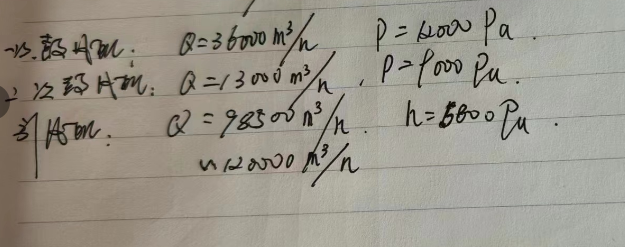 一次鼓风机: Q=36000 m³/h P=12000 Pa.
二次鼓风机: Q=13000 m³/h, P=9000 Pa.
引风机: Q=98500 m³/h. h=5800 Pa.
~120000 m³/h